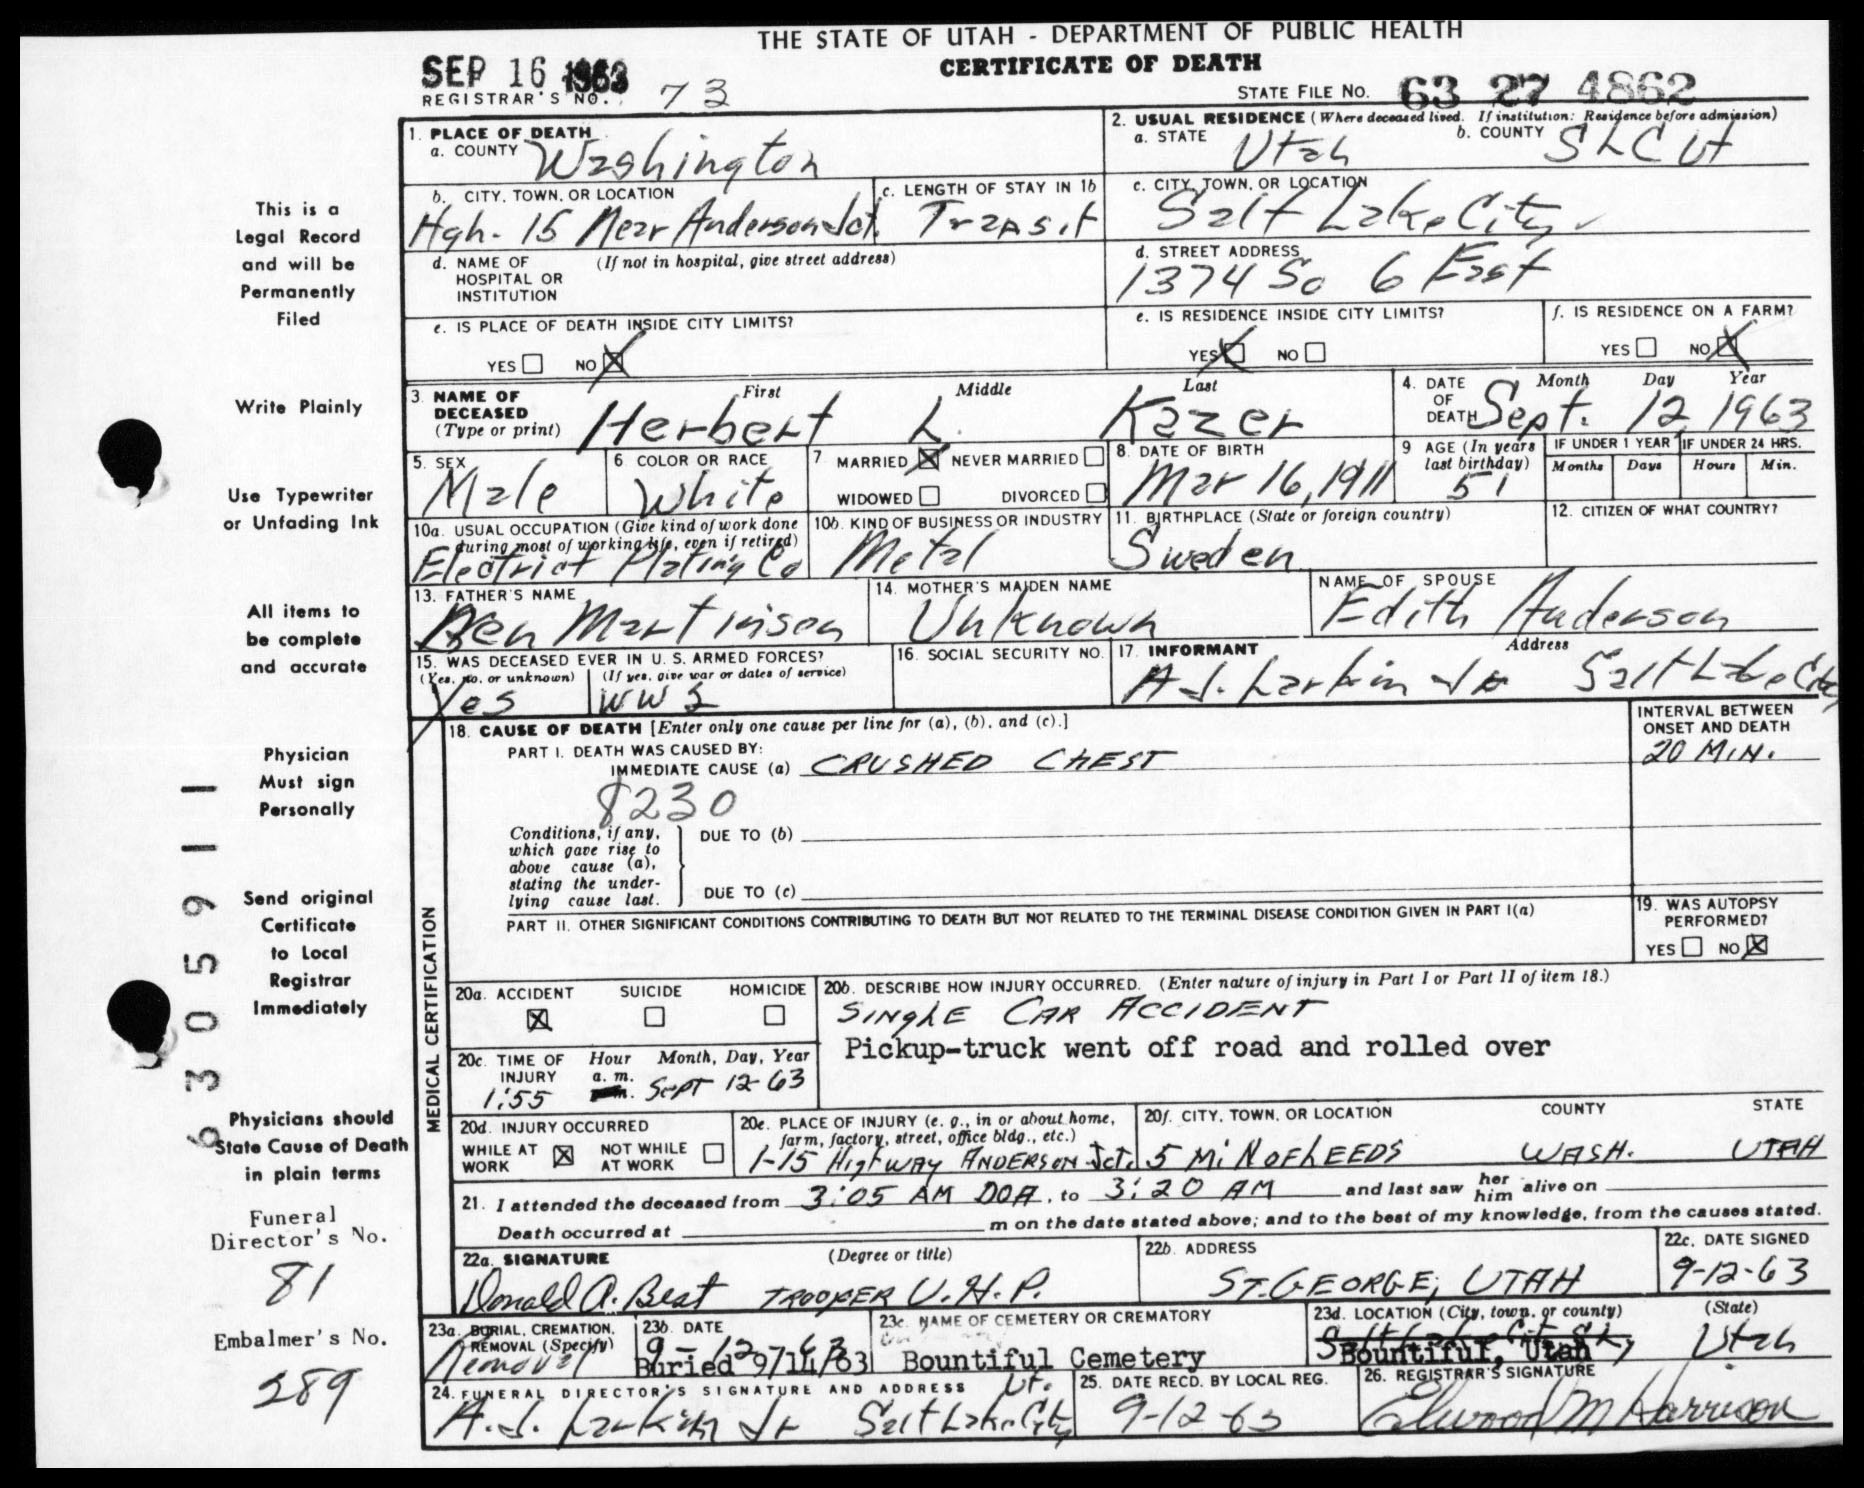 THE STATE OF UTAH - DEPARTMENT OF PUBLIC HEALTH
CERTIFICATE OF DEATH
SEP 16 1963
REGISTRAR'S NO. 73
STATE FILE NO. 63 27 4862
1. PLACE OF DEATH
a. COUNTY Washington
2. USUAL RESIDENCE (Where deceased lived. If institution: Residence before admission)
a. STATE Utah b. COUNTY SLC Ut
b. CITY, TOWN, OR LOCATION Hgh. 15 Near Anderson Jct.
c. LENGTH OF STAY IN 1b Transit
c. CITY, TOWN, OR LOCATION Salt Lake City
d. NAME OF HOSPITAL OR INSTITUTION (If not in hospital, give street address)
d. STREET ADDRESS 1374 So 6 East
e. IS PLACE OF DEATH INSIDE CITY LIMITS?
YES NO X
e. IS RESIDENCE INSIDE CITY LIMITS?
YES X NO
f. IS RESIDENCE ON A FARM?
YES NO X
3. NAME OF DECEASED (Type or print)
First Middle Last
Herbert L. Kazer
4. DATE OF DEATH Month Day Year
Sept. 12, 1963
5. SEX Male
6. COLOR OR RACE White
7. MARRIED X NEVER MARRIED
WIDOWED DIVORCED
8. DATE OF BIRTH Mar 16, 1911
9 AGE (In years last birthday) 51
IF UNDER 1 YEAR Months Days
IF UNDER 24 HRS. Hours Min.
10a. USUAL OCCUPATION (Give kind of work done during most of working life, even if retired)
Electrict Plating Co
10b. KIND OF BUSINESS OR INDUSTRY Metal
11. BIRTHPLACE (State or foreign country) Sweden
12. CITIZEN OF WHAT COUNTRY?
13. FATHER'S NAME Ben Martinson
14. MOTHER'S MAIDEN NAME Unknown
NAME OF SPOUSE Edith Anderson
15. WAS DECEASED EVER IN U. S. ARMED FORCES?
(Yes, no, or unknown) Yes (If yes, give war or dates of service) WW 2
16. SOCIAL SECURITY NO.
17. INFORMANT Address
A. J. Larkin Jr Salt Lake City
18. CAUSE OF DEATH [Enter only one cause per line for (a), (b), and (c).]
INTERVAL BETWEEN ONSET AND DEATH
PART I. DEATH WAS CAUSED BY:
IMMEDIATE CAUSE (a) CRUSHED CHEST
20 MIN.
8230
Conditions, if any, which gave rise to above cause (a), stating the underlying cause last.
DUE TO (b)
DUE TO (c)
PART II. OTHER SIGNIFICANT CONDITIONS CONTRIBUTING TO DEATH BUT NOT RELATED TO THE TERMINAL DISEASE CONDITION GIVEN IN PART I(a)
19. WAS AUTOPSY PERFORMED?
YES NO X
MEDICAL CERTIFICATION
20a. ACCIDENT SUICIDE HOMICIDE
X
20b. DESCRIBE HOW INJURY OCCURRED. (Enter nature of injury in Part I or Part II of item 18.)
SINGLE CAR ACCIDENT
Pickup-truck went off road and rolled over
20c. TIME OF INJURY Hour Month, Day, Year
1:55 a. m. Sept 12-63
20d. INJURY OCCURRED
WHILE AT WORK X NOT WHILE AT WORK
20e. PLACE OF INJURY (e. g., in or about home, farm, factory, street, office bldg., etc.)
I-15 HIGHWAY ANDERSON Jct.
20f. CITY, TOWN, OR LOCATION COUNTY STATE
5 Mi N OF LEEDS WASH. UTAH
21. I attended the deceased from 3:05 AM DOA, to 3:20 AM and last saw her him alive on
Death occurred at m on the date stated above; and to the best of my knowledge, from the causes stated.
22a. SIGNATURE (Degree or title)
Donald A. Best TROOPER U. H. P.
22b. ADDRESS ST. GEORGE, UTAH
22c. DATE SIGNED 9-12-63
23a. BURIAL, CREMATION, REMOVAL (Specify) Removal
23b. DATE 9-12-63
Buried 9/14/63
23c. NAME OF CEMETERY OR CREMATORY
Bountiful Cemetery
23d. LOCATION (City, town, or county) (State)
Salt Lake City Utah
Bountiful, Utah
24. FUNERAL DIRECTOR'S SIGNATURE AND ADDRESS
A. J. Larkin Jr Salt Lake City Ut.
25. DATE RECD. BY LOCAL REG. 9-12-63
26. REGISTRAR'S SIGNATURE
Elwood M Harrison
This is a
Legal Record
and will be
Permanently
Filed
Write Plainly
Use Typewriter
or Unfading Ink
All items to
be complete
and accurate
Physician
Must sign
Personally
Send original
Certificate
to Local
Registrar
Immediately
Physicians should
State Cause of Death
in plain terms
Funeral
Director's No.
81
Embalmer's No.
289
6305911